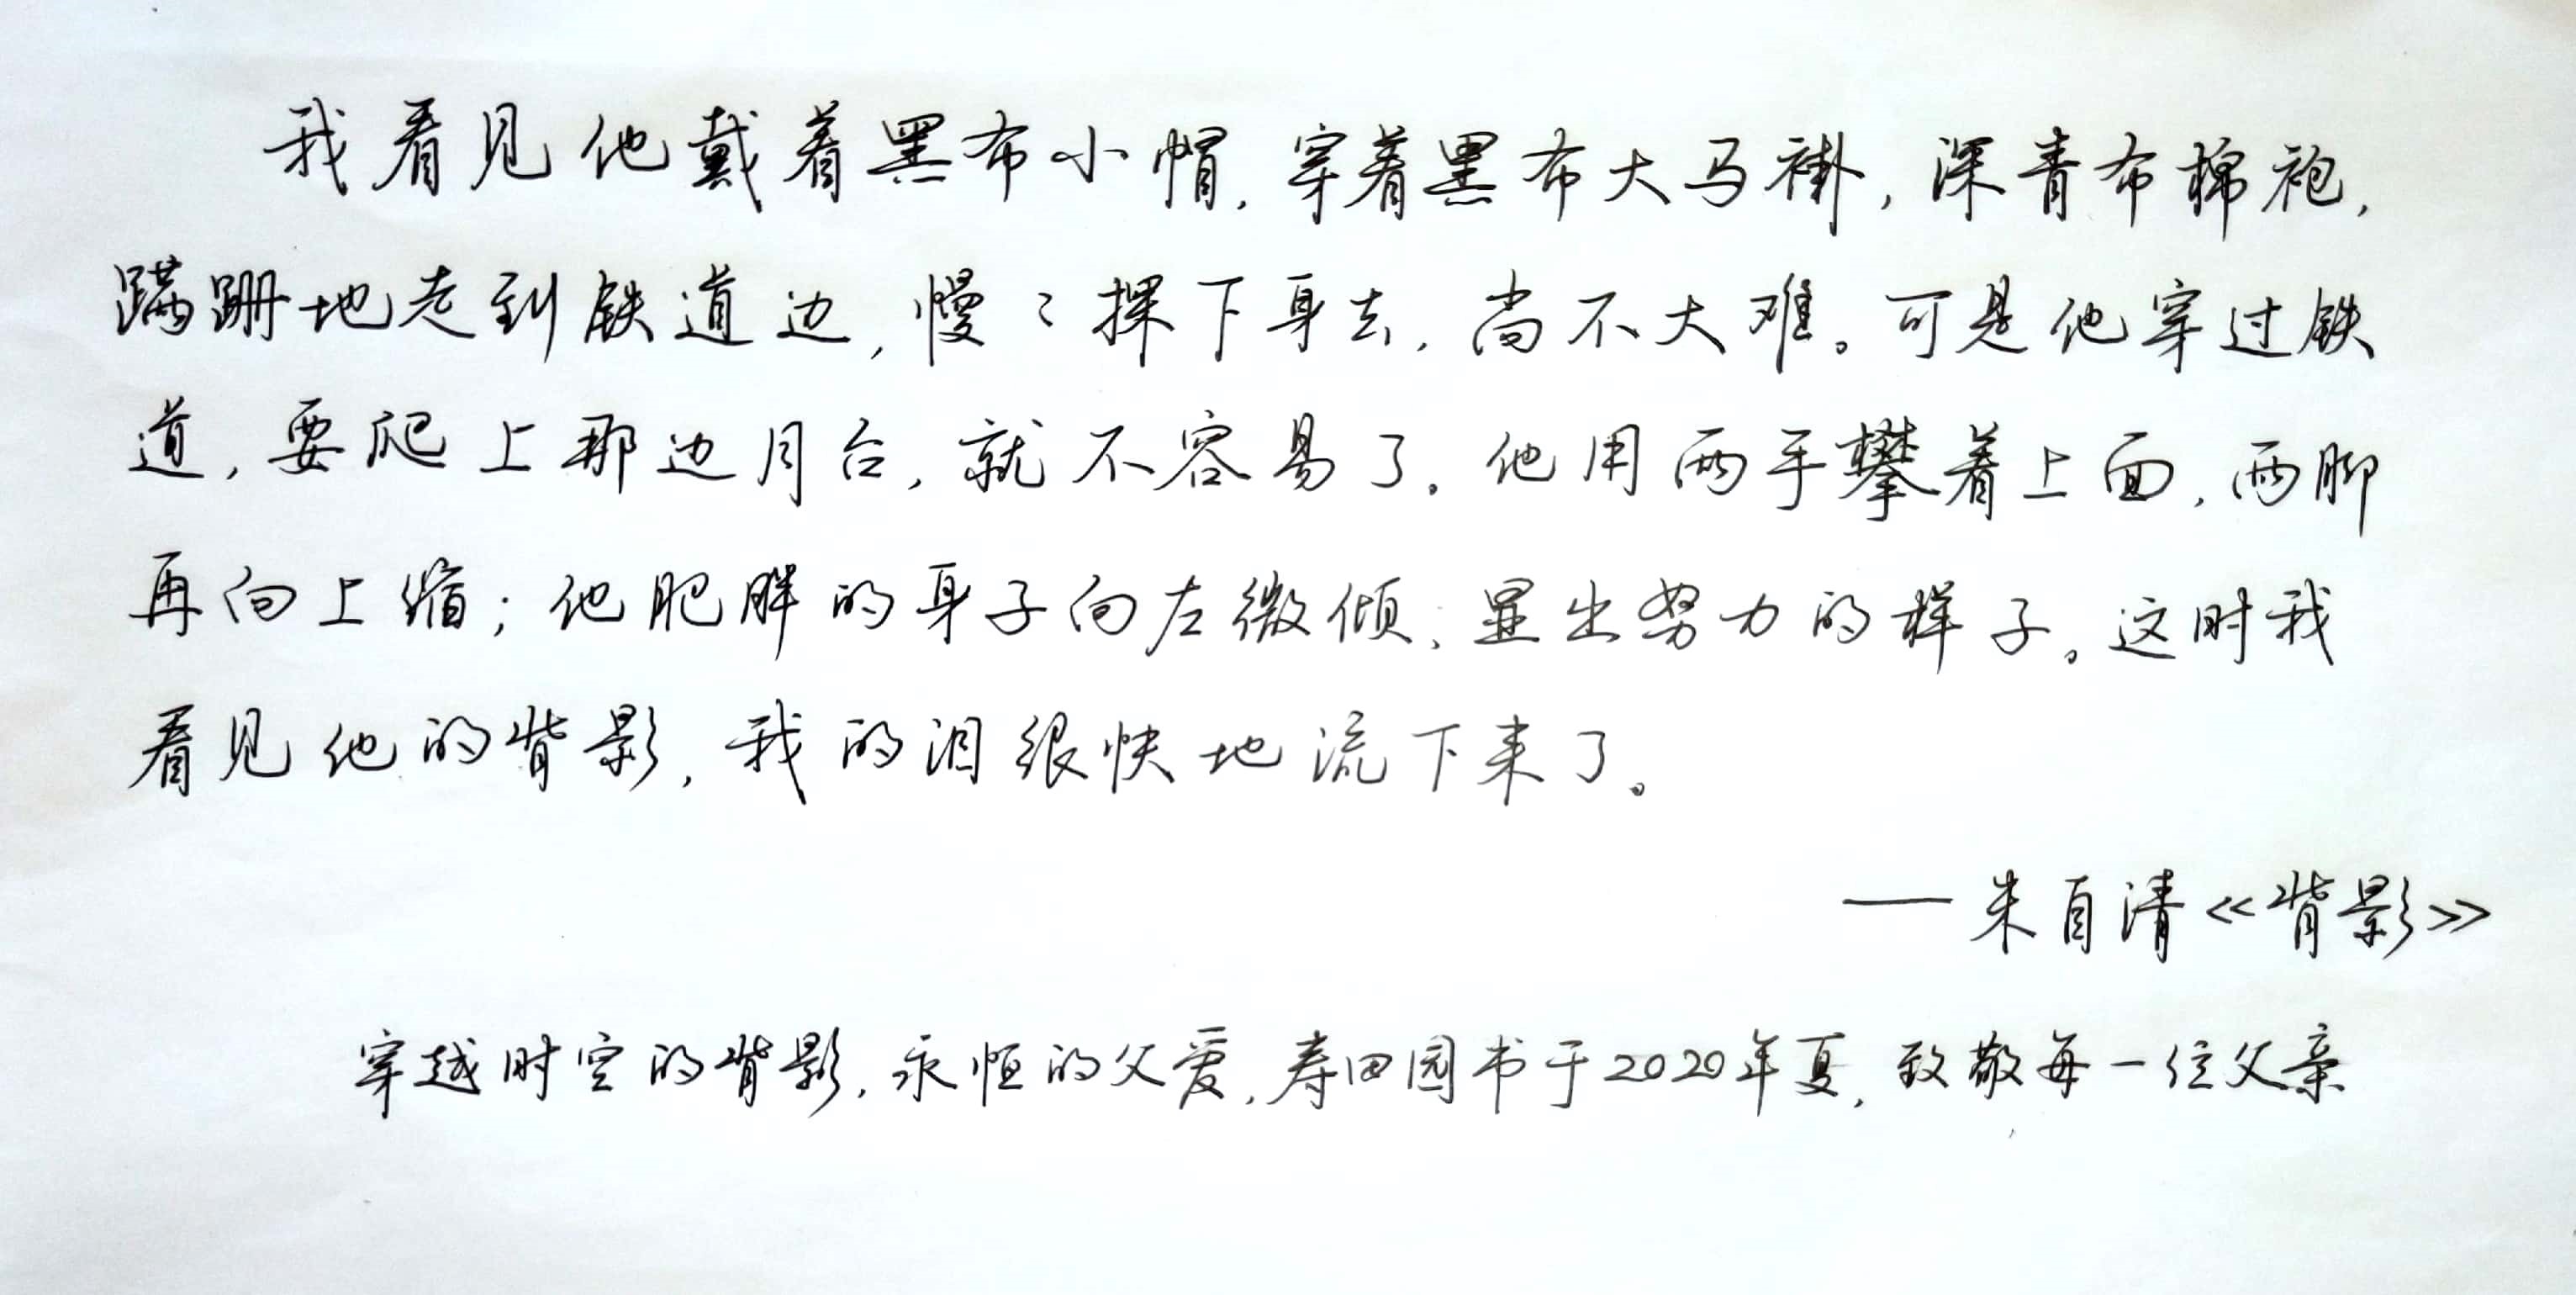 我看见他戴着黑布小帽,穿着黑布大马褂,深青布棉袍,
蹒跚地走到铁道边,慢々探下身去,尚不大难。可是他穿过铁
道,要爬上那边月台,就不容易了。他用两手攀着上面,两脚
再向上缩;他肥胖的身子向左微倾,显出努力的样子。这时我
看见他的背影,我的泪很快地流下来了。
——朱自清《背影》
穿越时空的背影,永恒的父爱,寿田园书于2020年夏,致敬每一位父亲